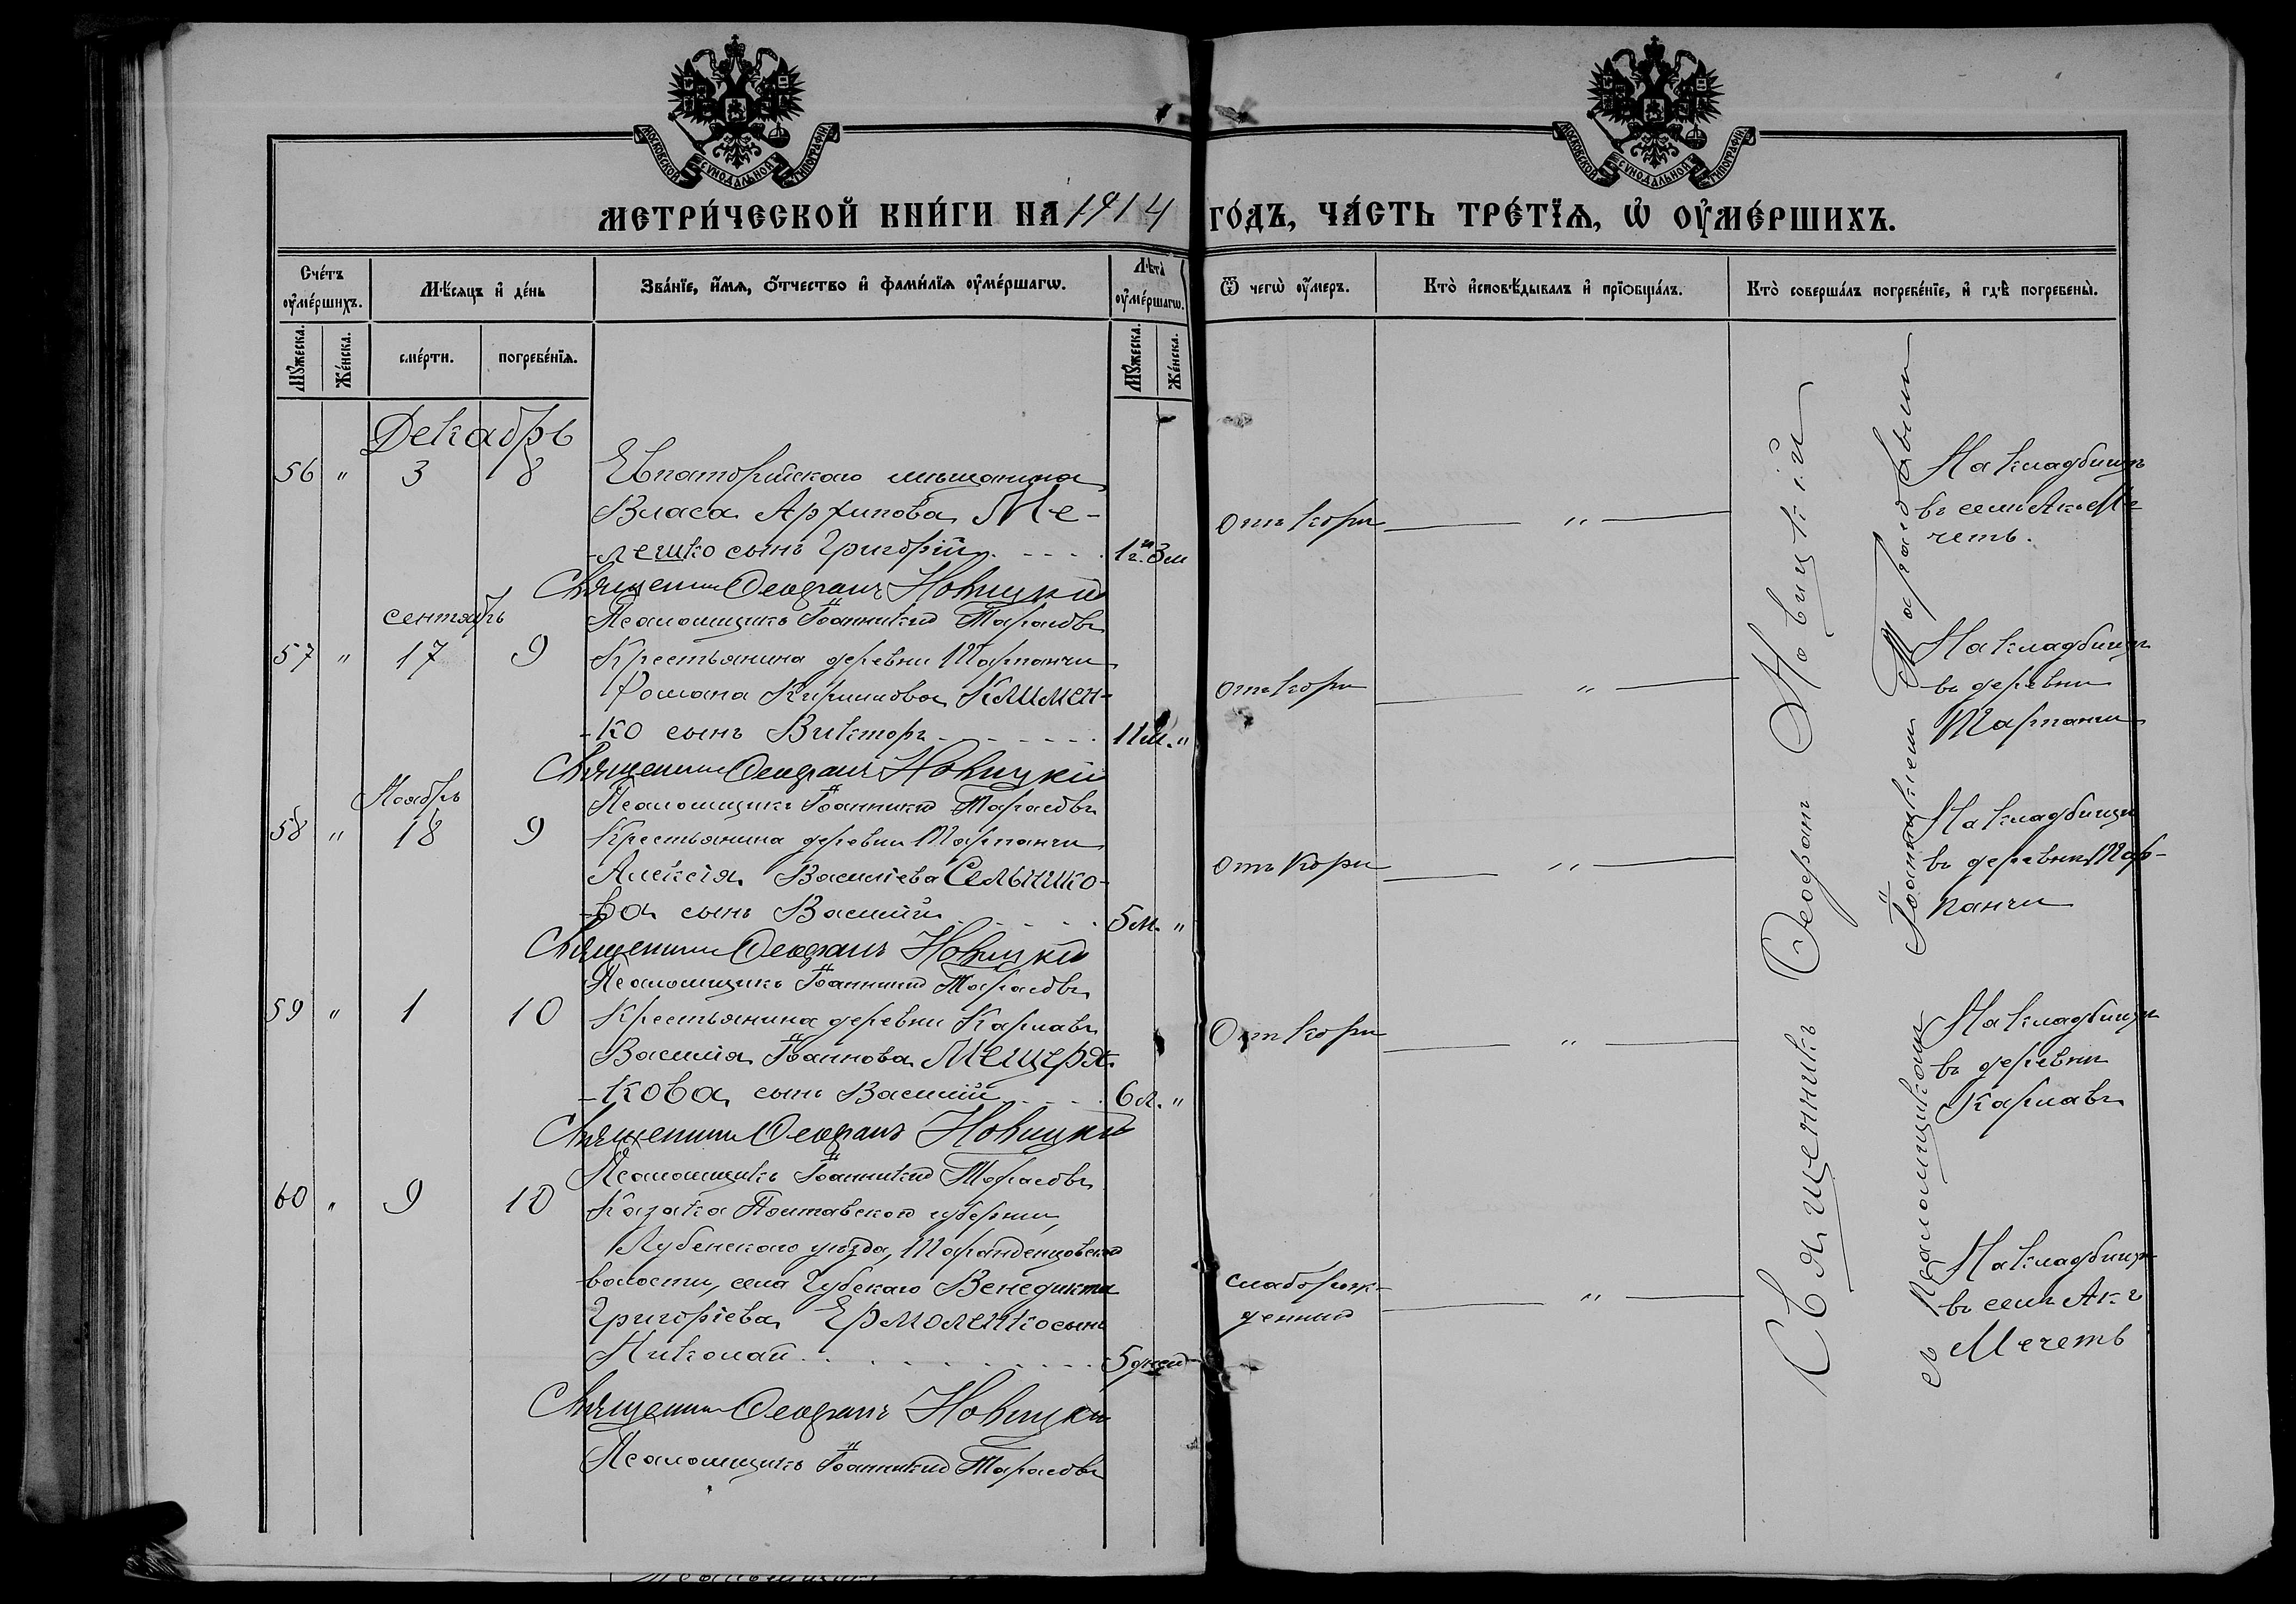 МОСКОВСКОЙ СѴНОДАЛЬНОЙ ТИПОГРАФІИ
МОСКОВСКОЙ СѴНОДАЛЬНОЙ ТИПОГРАФІИ
МЕТРИ́ЧЕСКОЙ КНИ́ГИ НА 1914 ГО́ДЪ, ЧА́СТЬ ТРЕ́ТЇѦ, Ѡ҆ ОУ҆МЕ́РШИХЪ.
Сче́тъ оу҆ме́ршихъ.
Мѣ́сяцъ и҆ де́нь
Зва́нїе, и҆́мѧ, ѻ҆́тчество и҆ фами́лїѧ оу҆ме́ршагѡ.
Лѣта̀ оу҆ме́ршагѡ.
Ѿ чегѡ̀ оу҆́меръ.
Кто̀ и҆сповѣ́дывалъ и҆ прїѡбща́лъ.
Кто̀ соверша́лъ погребе́нїе, и҆ гдѣ̀ погребены̀.
Мꙋ́жеска.
Же́нска.
сме́рти.
погребе́нїѧ.
Мꙋ́жеска.
Же́нска.
Декабрь
56 " 3 8 Евпаторійскаго мѣщанина
Власа Архипова Ме-
-лешко сынъ Григорій . . . . 1 г. и 3 м
отъ кори "
На кладбищѣ
въ селѣ Акъ-Ме-
четь.
Священникъ Ѳеофанъ Новицкій
Псаломщикъ Іоанникій Тарасовъ
сентябрь
57 " 17 9 Крестьянина деревни Тарпанчи
Романа Кириллова Климен-
-ко сынъ Викторъ . . . . . 11 м. "
отъ кори "
На кладбищѣ
въ деревни
Тарпанчи
Священникъ Ѳеофанъ Новицкій
Псаломщикъ Іоанникій Тарасовъ
Ноябрь
58 " 18 9 Крестьянина деревни Тарпанчи
Алексія Василіева Сельнико-
-ва сынъ Василій . . . . 5 м. "
отъ кори "
На кладбищѣ
въ деревни Тар-
панчи
Священникъ Ѳеофанъ Новицкій
Псаломщикъ Іоанникій Тарасовъ
59 " 1 10 Крестьянина деревни Карлавъ
Василія Іоаннова Мещеря-
-кова сынъ Василій . . . . 6 м. "
Отъ кори "
На кладбищѣ
въ деревни
Карлавъ
Священникъ Ѳеофанъ Новицкій
Псаломщикъ Іоанникій Тарасовъ
60 " 9 10 Казака Полтавской губерніи,
Лубенскаго уѣзда, Тарандинцовской
волости, села Губскаго Венедикта
Григоріева Ермоленко сынъ
Николай . . . . . . . 5 дней
слаборож-
денный "
На кладбищѣ
въ селѣ Акъ
Мечеть
Священникъ Ѳеофанъ Новицкій
Псаломщикъ Іоанникій Тарасовъ
Священникъ Ѳеофанъ Новицкій
съ Псаломщикомъ Іоанникіемъ Тарасовымъ